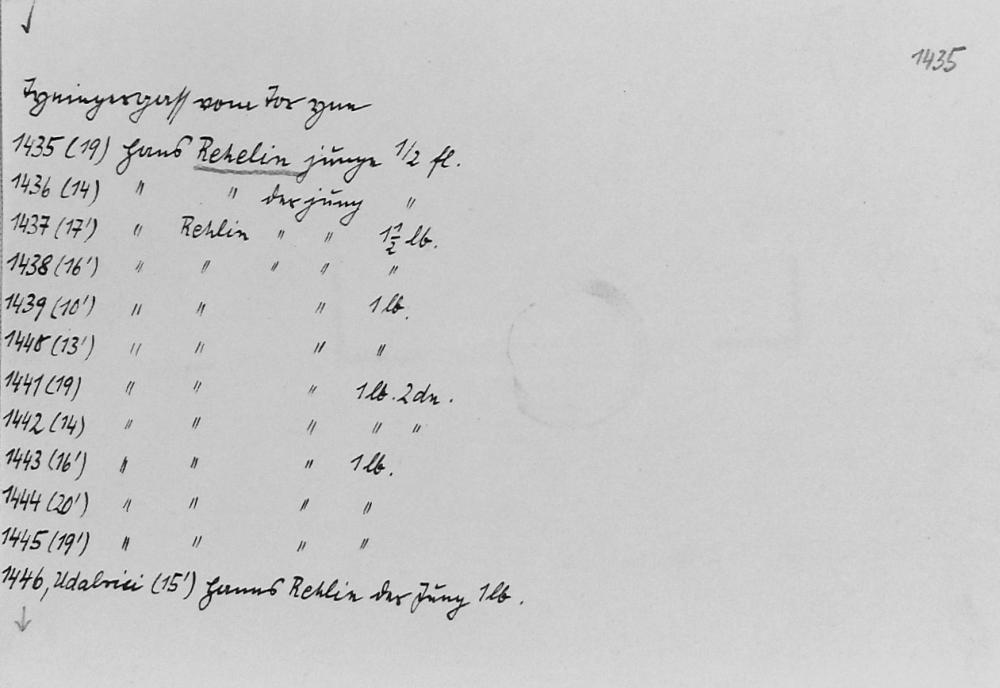 1435
vom Tor
1435 (19) Hans Rehelin junge 1/2 fl.
1436 (14) " " der jung "
1437 (17') " Rehlin " " 1 1/2 lb.
1438 (16') " " " " "
1439 (10') " " " 1 lb.
1440 (13') " " " "
1441 (19) " " " 1 lb. 2 dn.
1442 (14) " " " " "
1443 (16') " " " 1 lb.
1444 (20') " " " "
1445 (19') " " " "
1446, Udalrici (15') Hanns Rehlin der Jung 1 lb.